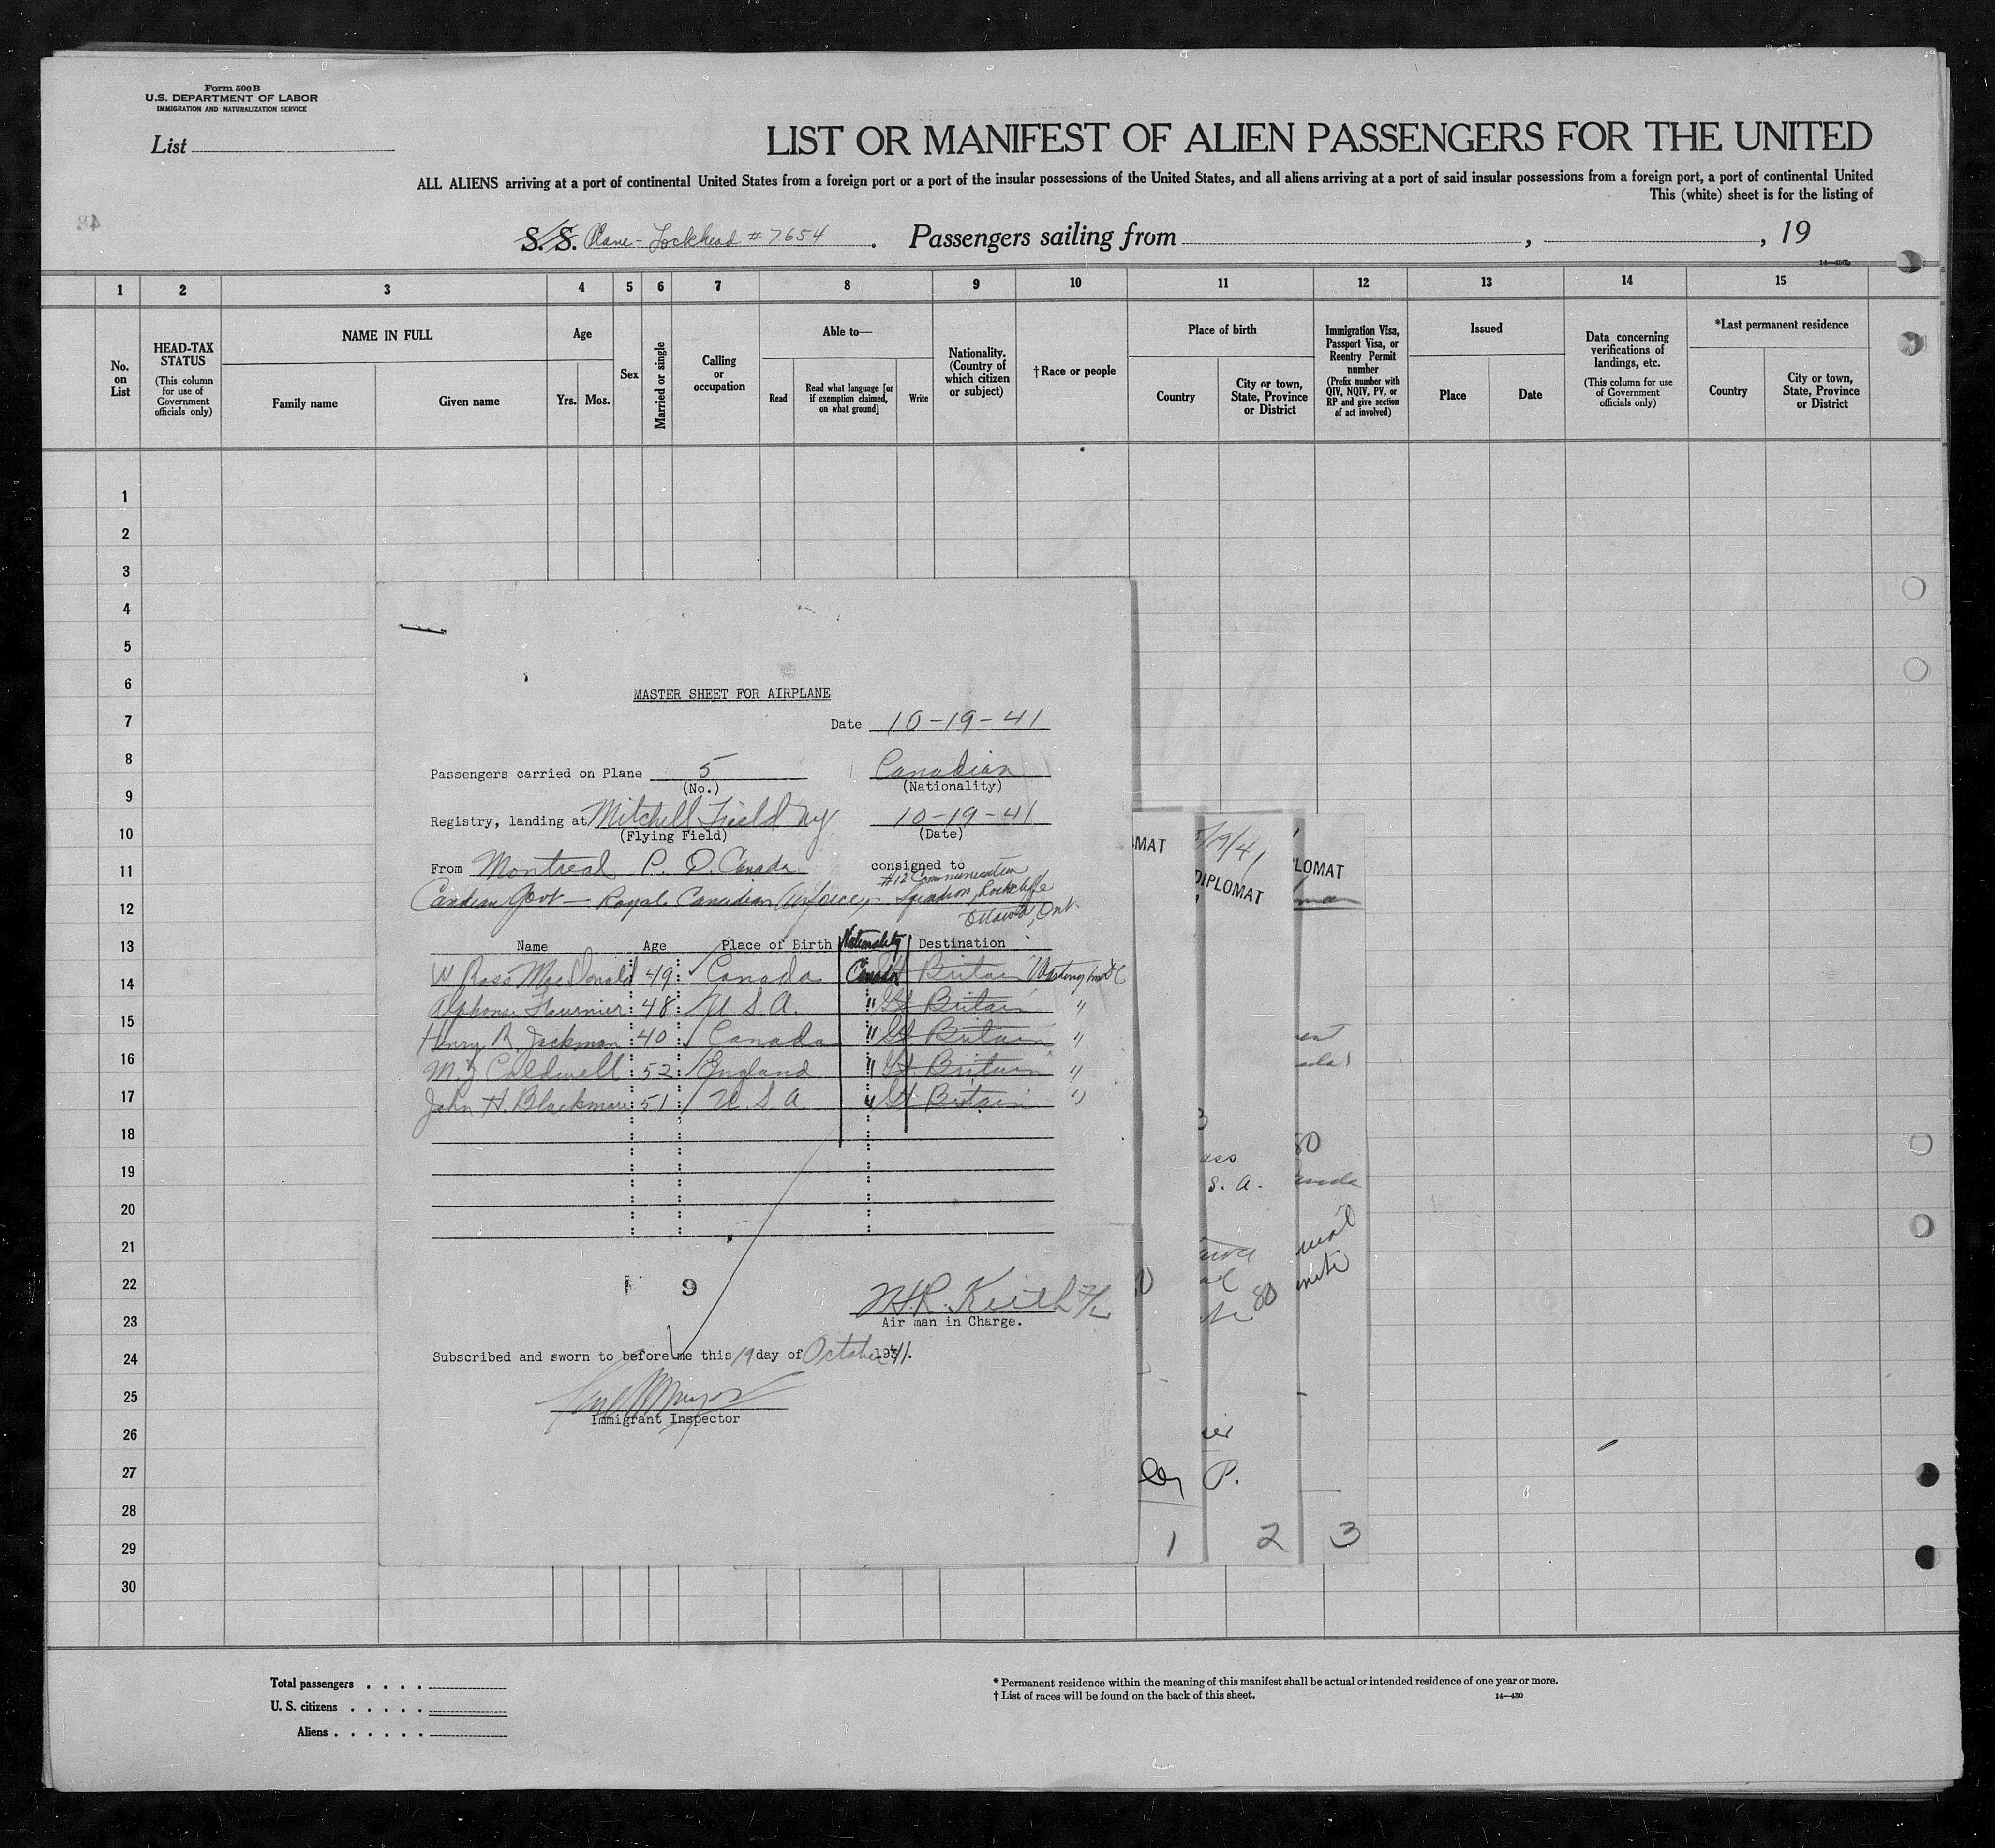 Form 500 B
U.S. DEPARTMENT OF LABOR
IMMIGRATION AND NATURALIZATION SERVICE
List
LIST OR MANIFEST OF ALIEN PASSENGERS FOR THE UNITED
ALL ALIENS arriving at a port of continental United States from a foreign port or a port of the insular possessions of the United States, and all aliens arriving at a port of said insular possessions from a foreign port, a port of continental United
This (white) sheet is for the listing of
S.S. Plane - Lockhead # 7654 . Passengers sailing from , , 19
1 2 3 4 5 6 7 8 9 10 11 12 13 14 15
No. on List
HEAD-TAX STATUS
(This column for use of Government officials only)
NAME IN FULL
Family name
Given name
Age
Yrs. Mos.
Sex
Married or single
Calling or occupation
Able to—
Read
Read what language [or if exemption claimed, on what ground]
Write
Nationality. (Country of which citizen or subject)
†Race or people
Place of birth
Country
City or town, State, Province or District
Immigration Visa, Passport Visa, or Reentry Permit number
(Prefix number with QIV, NQIV, PV, or RP and give section of act involved)
Issued
Place
Date
Data concerning verifications of landings, etc.
(This column for use of Government officials only)
*Last permanent residence
Country
City or town, State, Province or District
1
2
3
4
5
6
7
8
9
10
11
12
13
14
15
16
17
18
19
20
21
22
23
24
25
26
27
28
29
30
MASTER SHEET FOR AIRPLANE
Date 10-19-41
Passengers carried on Plane 5 Canadian
(No.) (Nationality)
Registry, landing at Mitchell Field NY 10-19-41
(Flying Field) (Date)
From Montreal P. Q. Canada consigned to
#12 Communication
Candian Govt - Royal Canadian Airforce, Squadron, Rockcliffe
Ottawa, Ont.
Name Age Place of Birth Nationality Destination
W Ross MacDonald 49 Canada Canada Gt Britain Washington DC
Alphonse Fournier 48 U S A. " Gt Britain "
Henry R Jackman 40 Canada " Gt Britain "
M. J Coldwell 52 England " Gt. Britain "
John H. Blackmore 51 U S A " Gt Britain "
9
H.R. Keith F/L
Air man in Charge.
Subscribed and sworn to before me this 19 day of October 1941.
Immigrant Inspector
OMAT
5/9/41
DIPLOMAT
PLOMAT
80
S. A.
80
P.
1 2 3
Total passengers . . . .
U. S. citizens . . . . .
Aliens . . . . . .
* Permanent residence within the meaning of this manifest shall be actual or intended residence of one year or more.
† List of races will be found on the back of this sheet.
14—430